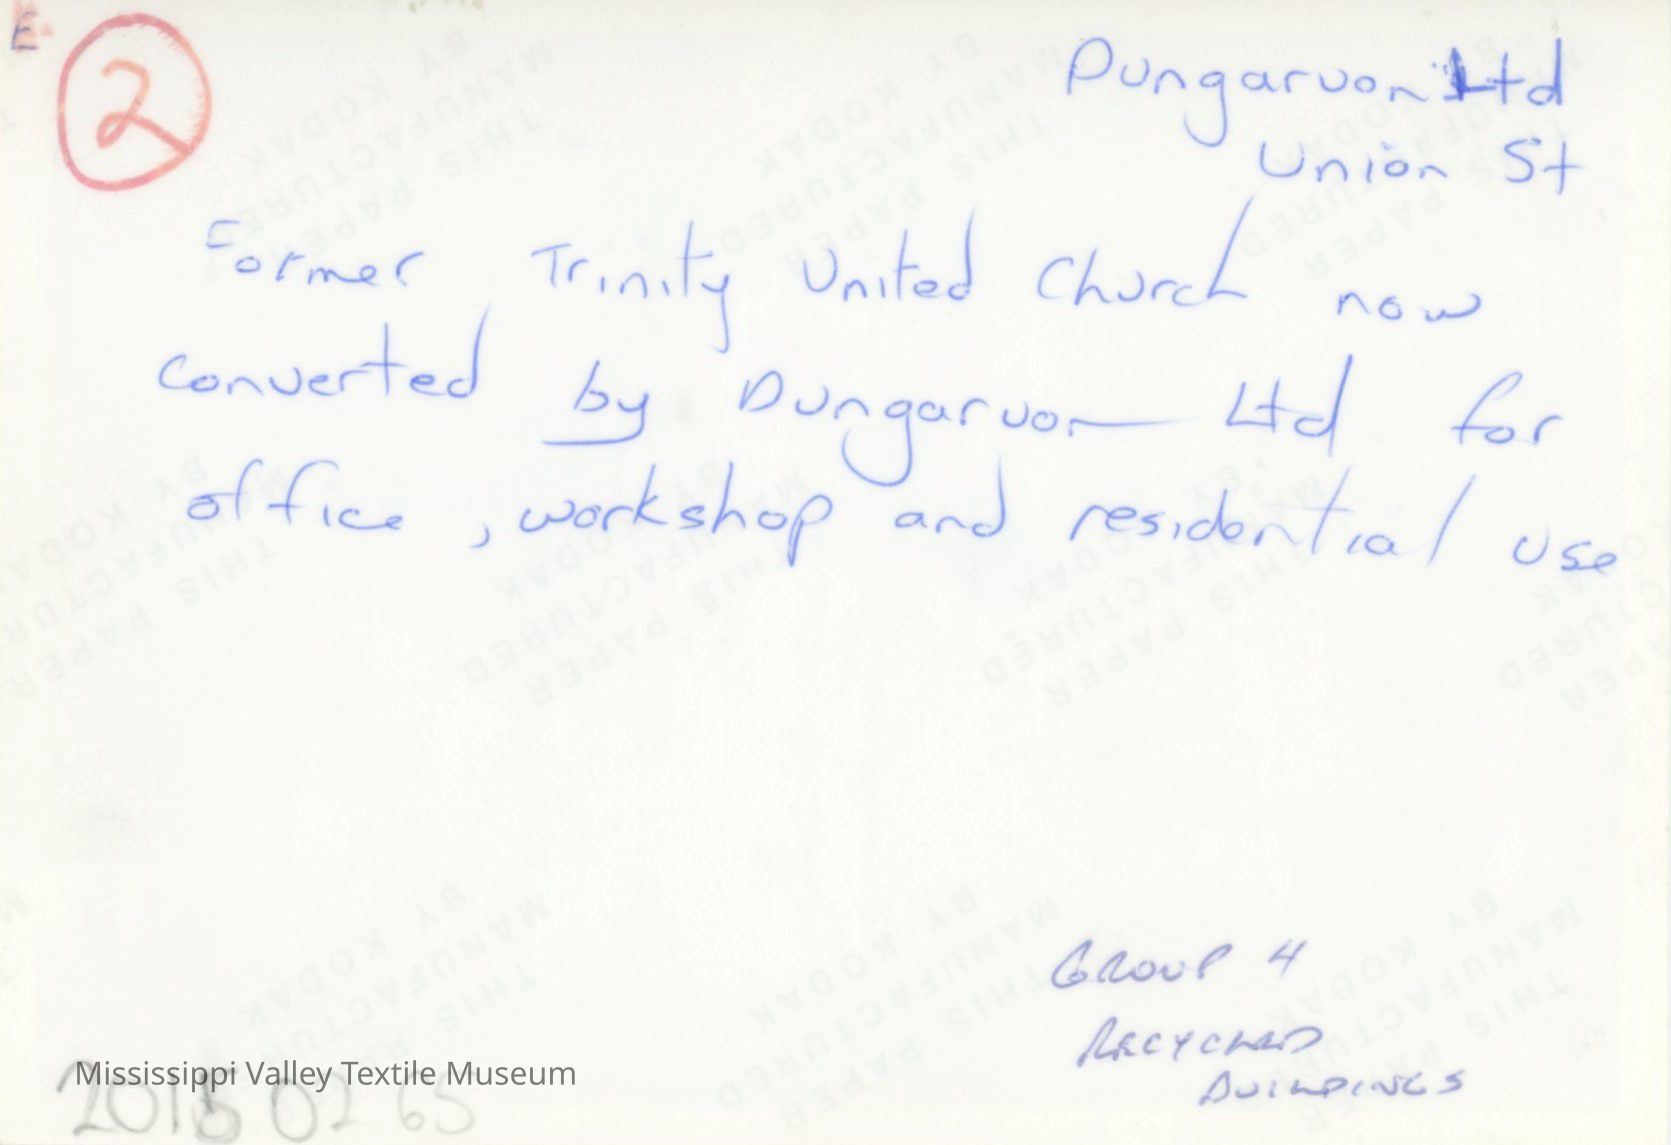 E
2
Dungarvon Ltd
Union St
Former Trinity United Church now
converted by Dungarvon Ltd for
office, workshop and residential use
GROUP 4
RECYCLED
BUILDINGS
Mississippi Valley Textile Museum
THIS PAPER
MANUFACTURED
BY KODAK